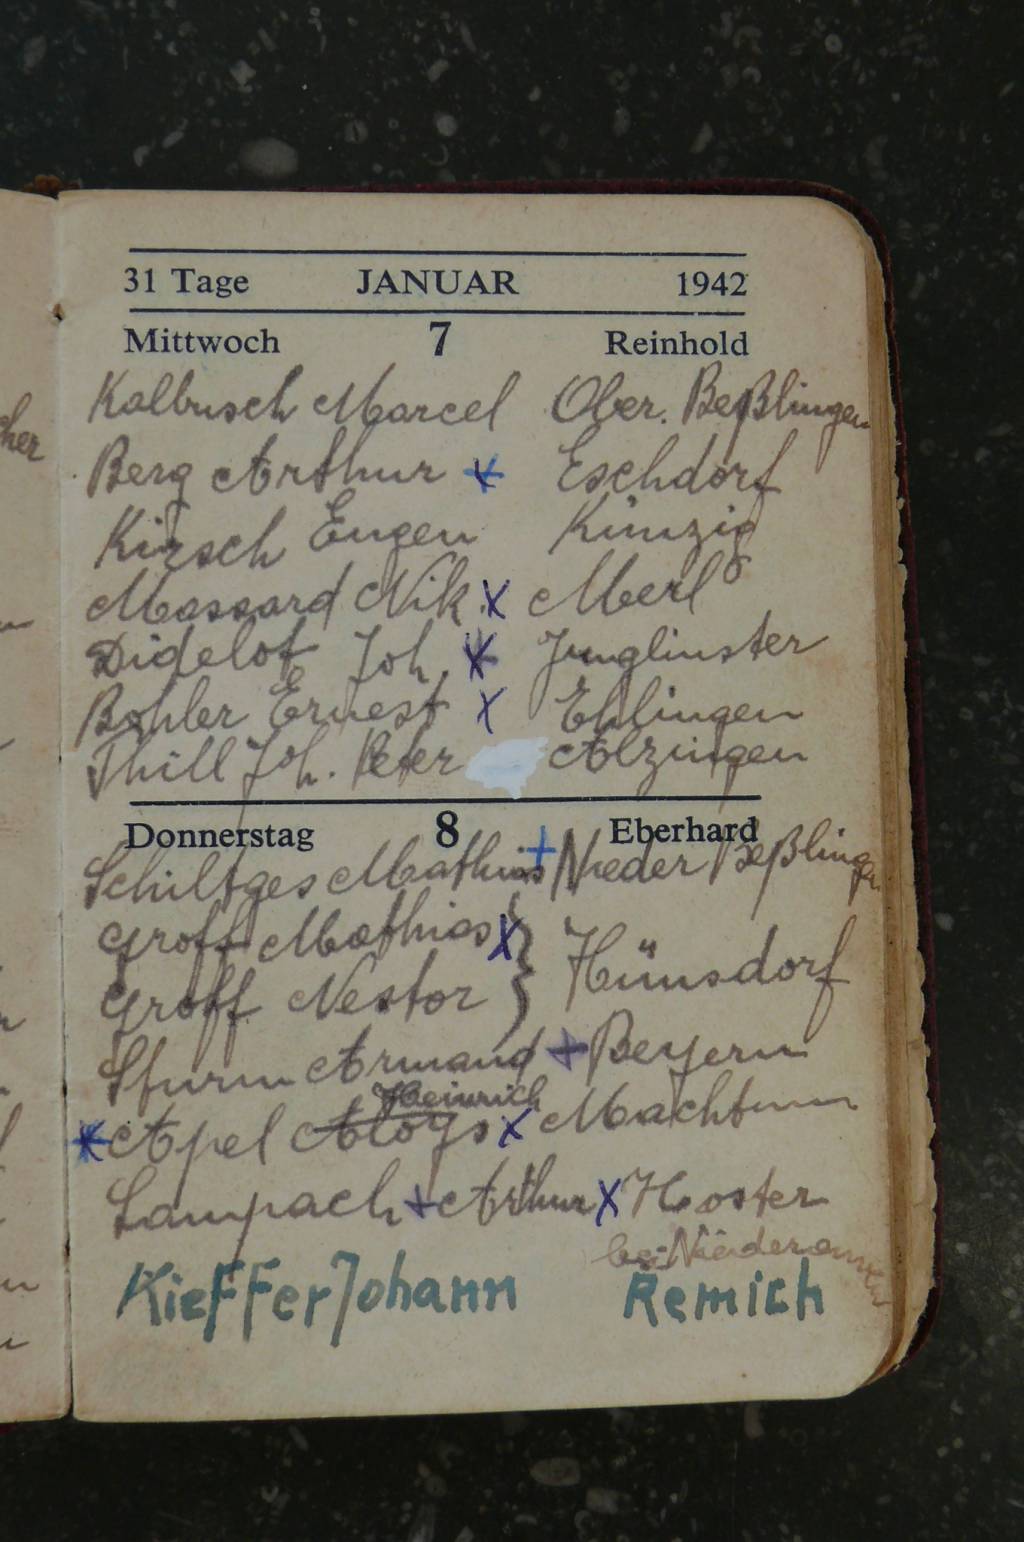 31 Tage JANUAR 1942
Mittwoch 7 Reinhold
Kalbusch Marcel Ober. Beßlingen
Berg Arthur Eschdorf
Kirsch Eugen Künzig
Massard Nik. x Merl
Didelot Joh. Junglinster
Bohler Ernest x Ehlingen
Thill Joh. Peter Alzingen
Donnerstag 8 Eberhard
Schiltges Mathias + Nieder Beßlingen
Groff Mathias x } Hünsdorf
Groff Nestor
Sturm Armand + Beyern
Heinrich
* Apel Aloys x Machtum
Lampach + Arthur x Hoster
bei Niederanven
Kieffer Johann Remich